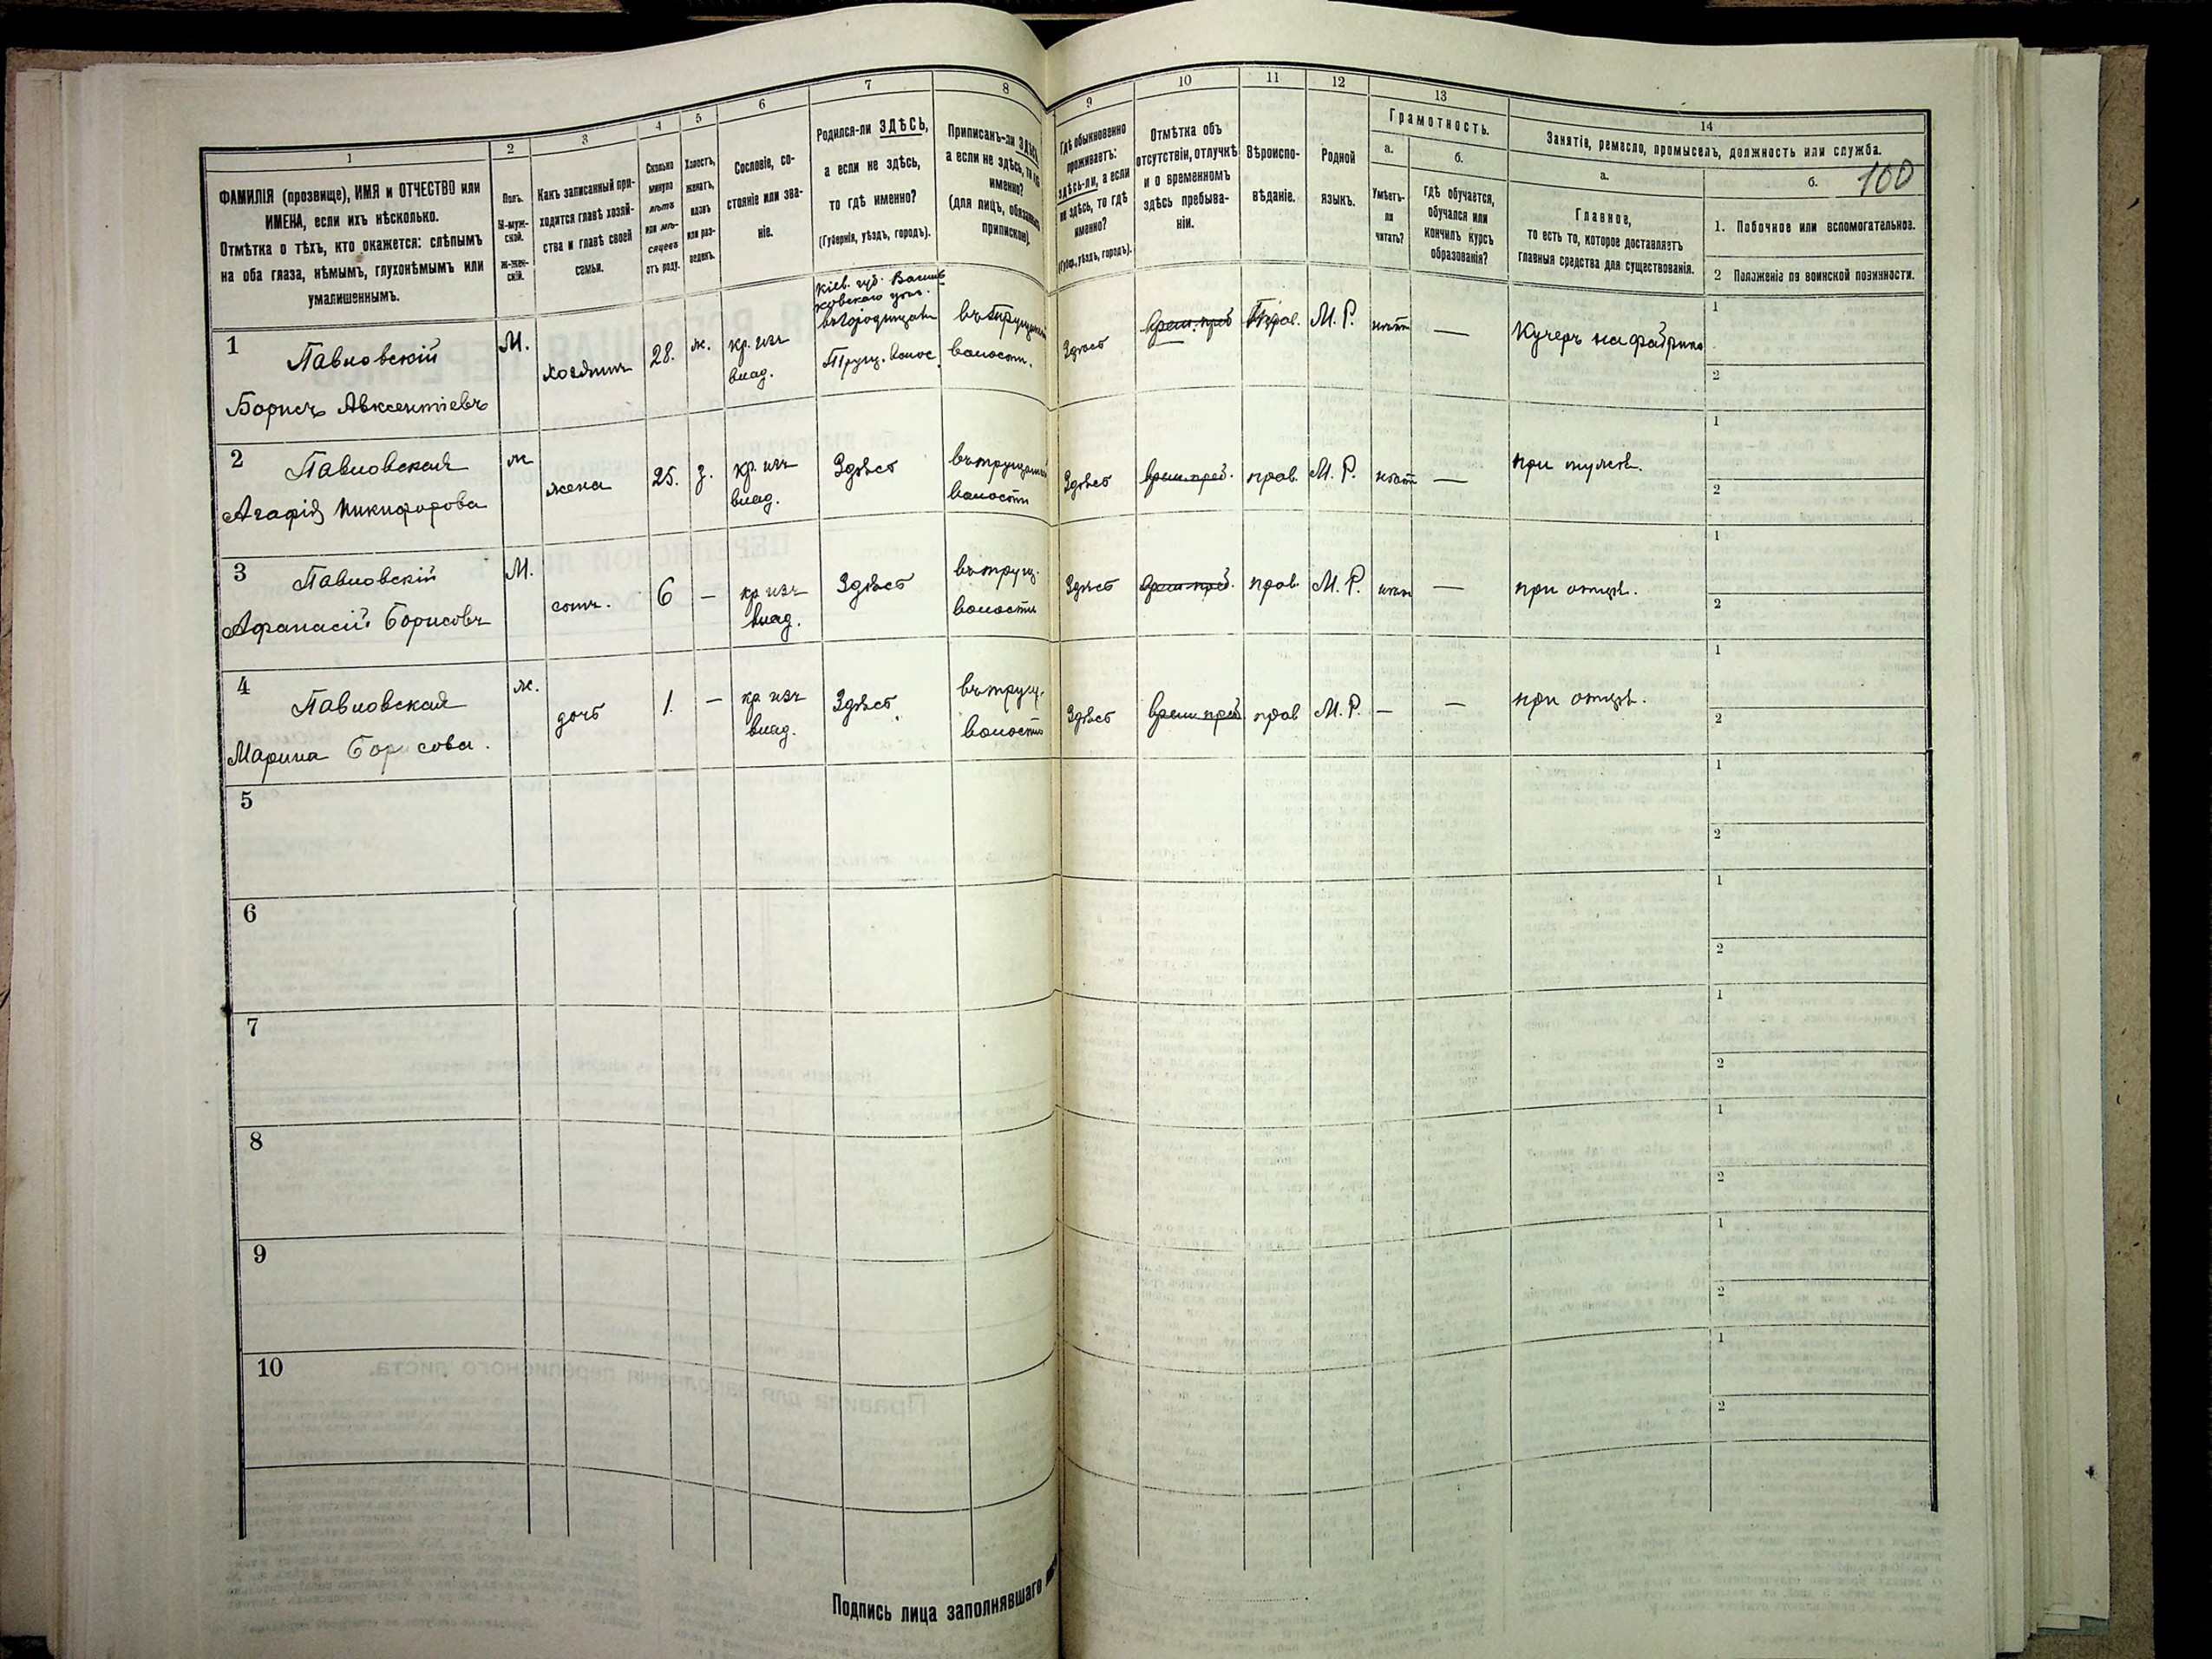 1
2
3
4
5
6
7
8
ФАМИЛІЯ (прозвище), ИМЯ и ОТЧЕСТВО или
ИМЕНА, если ихъ нѣсколько.
Отмѣтка о тѣхъ, кто окажется: слѣпымъ
на оба глаза, нѣмымъ, глухонѣмымъ или
умалишеннымъ.
Полъ.
М-муж-
ской.
Ж-жен-
скій.
Какъ записанный при-
ходится главѣ хозяй-
ства и главѣ своей
семьи.
Сколько
минуло
лѣтъ
или мѣ-
сяцевъ
отъ роду.
Холостъ,
женатъ,
вдовъ
или раз-
веденъ.
Сословіе, со-
стояніе или зва-
ніе.
Родился-ли ЗДѢСЬ,
а если не здѣсь,
то гдѣ именно?
(Губернія, уѣздъ, городъ).
Приписанъ-ли ЗДѢСЬ
а если не здѣсь, то гдѣ
именно?
(для лицъ, обязанныхъ
припискою).
1
Павловскій
Борисъ Авксентіевъ
М.
хозяинъ
28.
ж.
кр. изъ
влад.
Кіев. губ. Василь
ковскаго уѣзд.
Труш. волос.
волости.
2
Павловская
Агафія Никифорова
ж
жена
25.
з.
кр. изъ
влад.
Здѣсь
волости
3
Павловскій
Афанасій Борисовъ
М.
сынъ.
6
—
кр изъ
влад.
Здѣсь
волости
4
Павловская
Марина Борисова.
ж.
дочь
1.
—
кр изъ
влад.
Здѣсь
волости
5
6
7
8
9
10
Подпись лица заполнявшаго
9
10
11
12
13
14
Гдѣ обыкновенно
проживаетъ:
здѣсь-ли, а если
не здѣсь, то гдѣ
именно?
(Губер., уѣздъ, городъ).
Отмѣтка объ
отсутствіи, отлучкѣ
и о временномъ
здѣсь пребыва-
ніи.
Вѣроиспо-
вѣданіе.
Родной
языкъ.
Грамотность.
а.
Умѣетъ-
ли
читать?
б.
гдѣ обучается,
обучался или
кончилъ курсъ
образованія?
Занятіе, ремесло, промыселъ, должность или служба.
а.
Главное,
то есть то, которое доставляетъ
главныя средства для существованія.
б.
160
1. Побочное или вспомогательное.
2 Положеніе по воинской повинности.
Здѣсь
врем. преб
Прав.
М. Р.
нѣтъ
—
Кучеръ на фабрикѣ
1
2
Здѣсь
врем. преб.
прав.
М. Р.
нѣтъ
—
при мужѣ.
1
2
Здѣсь
врем преб.
прав.
М. Р.
нѣтъ
—
при отцѣ.
1
2
Здѣсь
врем преб
прав
М. Р.
—
—
при отцѣ.
1
2
1
2
1
2
1
2
1
2
1
2
1
2